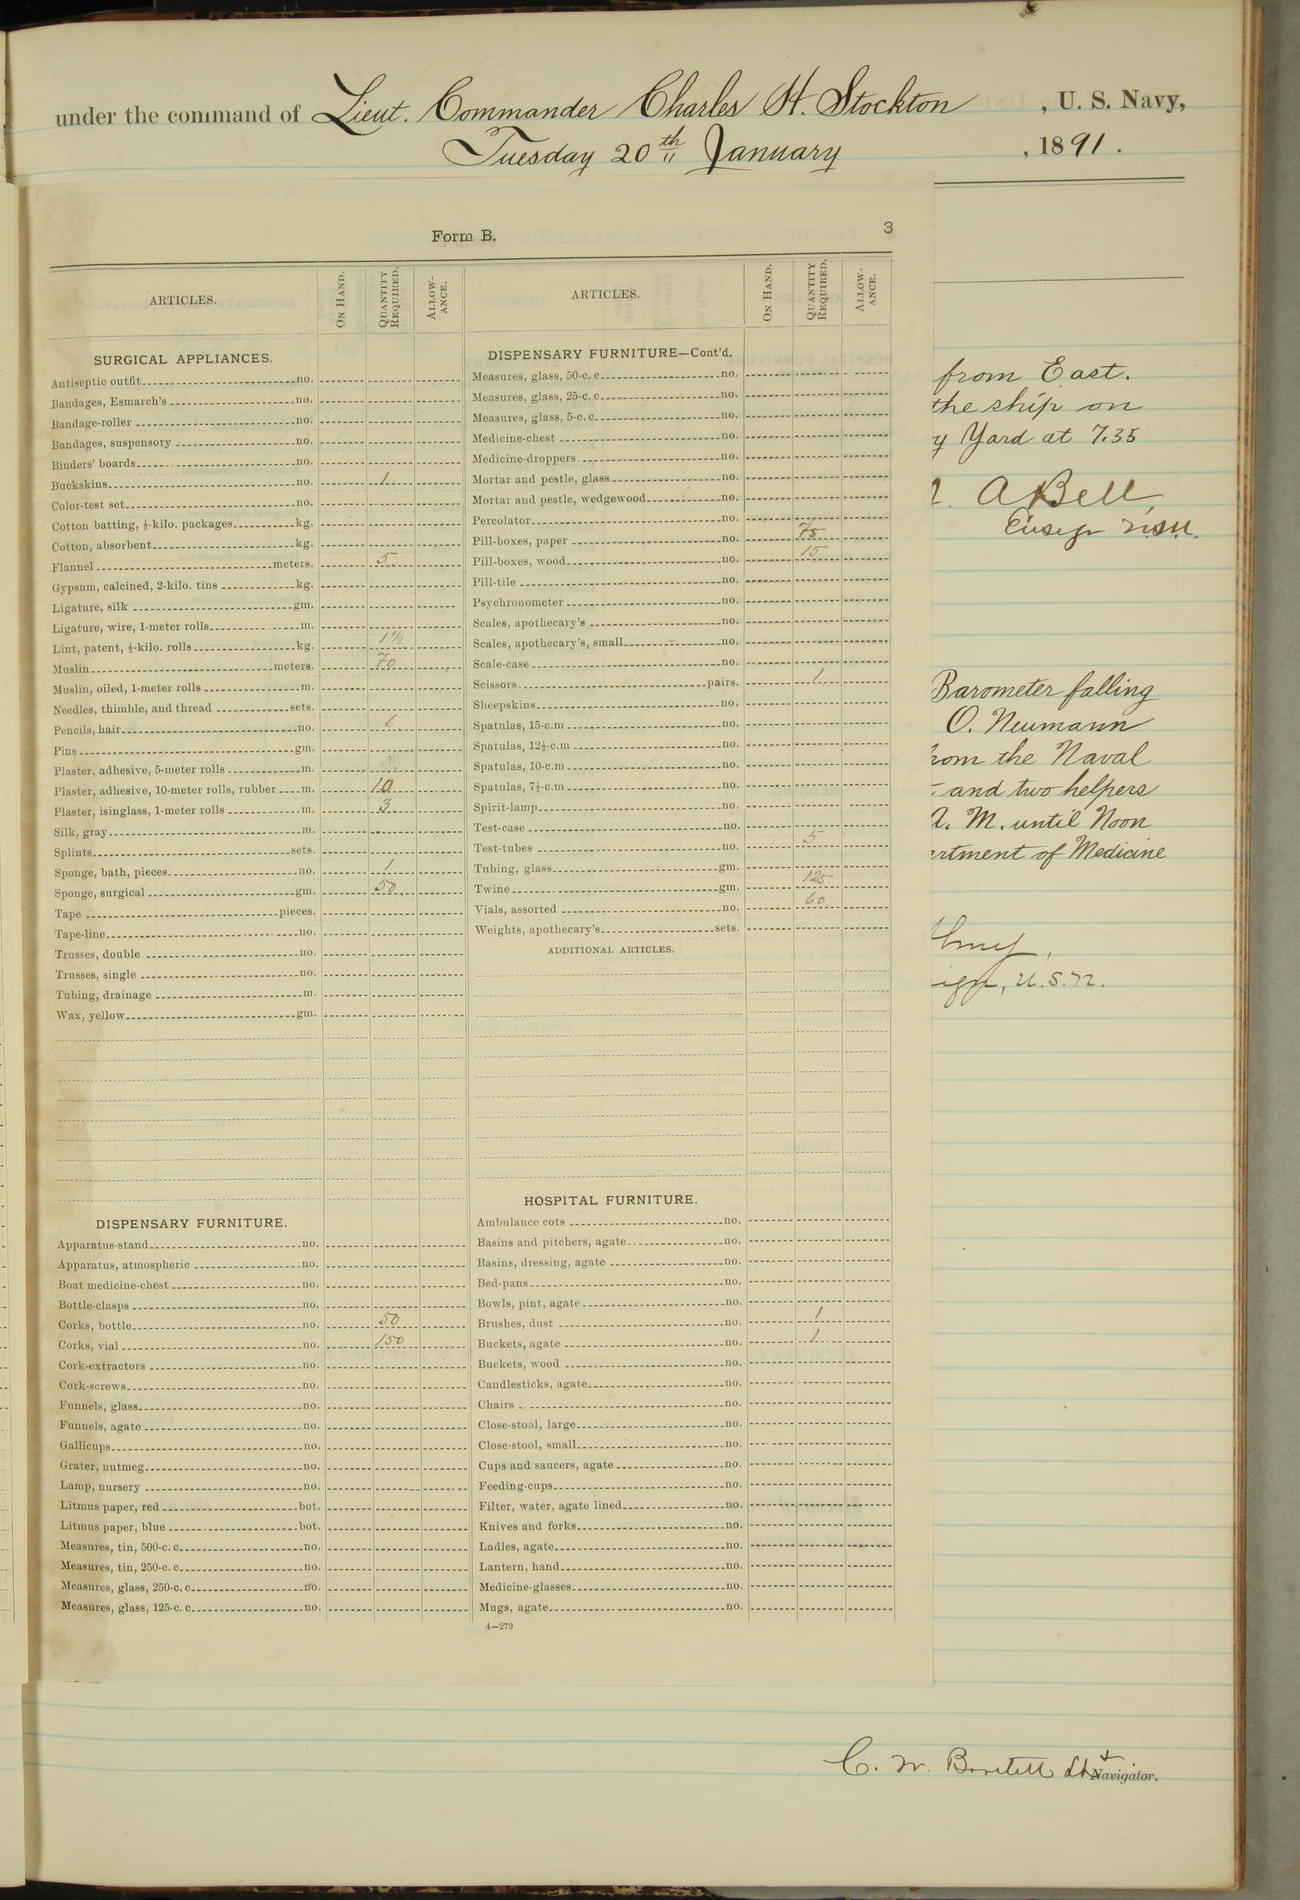 under the command of Lieut. Commander Charles H. Stockton, U. S. Navy,
Tuesday 20th January, 1891.
Form B.
3
ARTICLES.
ON HAND.
QUANTITY REQUIRED.
ALLOW-ANCE.
SURGICAL APPLIANCES.
Antiseptic outfit no.
Bandages, Esmarch's no.
Bandage-roller no.
Bandages, suspensory no.
Binders' boards no.
Buckskins no. 1
Color-test set no.
Cotton batting, ½-kilo. packages kg.
Cotton, absorbent kg.
Flannel meters. 5
Gypsum, calcined, 2-kilo. tins kg.
Ligature, silk gm.
Ligature, wire, 1-meter rolls m.
Lint, patent, ½-kilo. rolls kg. 1½
Muslin meters. 70
Muslin, oiled, 1-meter rolls m.
Needles, thimble, and thread sets.
Pencils, hair no. 6
Pins gm.
Plaster, adhesive, 5-meter rolls m.
Plaster, adhesive, 10-meter rolls, rubber m. 10
Plaster, isinglass, 1-meter rolls m. 3
Silk, gray m.
Splints sets.
Sponge, bath, pieces no. 1
Sponge, surgical gm. 50
Tape pieces.
Tape-line no.
Trusses, double no.
Trusses, single no.
Tubing, drainage m.
Wax, yellow gm.
DISPENSARY FURNITURE.
Apparatus-stand no.
Apparatus, atmospheric no.
Boat medicine-chest no.
Bottle-clasps no.
Corks, bottle no. 50
Corks, vial no. 150
Cork-extractors no.
Cork-screws no.
Funnels, glass no.
Funnels, agate no.
Gallicups no.
Grater, nutmeg no.
Lamp, nursery no.
Litmus paper, red bot.
Litmus paper, blue bot.
Measures, tin, 500-c. c no.
Measures, tin, 250-c. c no.
Measures, glass, 250-c. c no.
Measures, glass, 125-c. c no.
ARTICLES.
ON HAND.
QUANTITY REQUIRED.
ALLOW-ANCE.
DISPENSARY FURNITURE—Cont'd.
Measures, glass, 50-c. c no.
Measures, glass, 25-c. c no.
Measures, glass, 5-c. c no.
Medicine-chest no.
Medicine-droppers no.
Mortar and pestle, glass no.
Mortar and pestle, wedgewood no.
Percolator no.
Pill-boxes, paper no. 75
Pill-boxes, wood no. 15
Pill-tile no.
Psychronometer no.
Scales, apothecary's no.
Scales, apothecary's, small no.
Scale-case no.
Scissors pairs. 1
Sheepskins no.
Spatulas, 15-c.m no.
Spatulas, 12½-c.m no.
Spatulas, 10-c.m no.
Spatulas, 7½-c.m no.
Spirit-lamp no.
Test-case no.
Test-tubes no. 5
Tubing, glass gm.
Twine gm. 125
Vials, assorted no. 60
Weights, apothecary's sets.
ADDITIONAL ARTICLES.
HOSPITAL FURNITURE.
Ambulance cots no.
Basins and pitchers, agate no.
Basins, dressing, agate no.
Bed-pans no.
Bowls, pint, agate no.
Brushes, dust no. 1
Buckets, agate no. 1
Buckets, wood no.
Candlesticks, agate no.
Chairs no.
Close-stool, large no.
Close-stool, small no.
Cups and saucers, agate no.
Feeding-cups no.
Filter, water, agate lined no.
Knives and forks no.
Ladles, agate no.
Lantern, hand no.
Medicine-glasses no.
Mugs, agate no.
4—279
from East.
the ship on
y Yard at 7.35
A Bell,
Ensign USN.
Barometer falling
O. Neumann
from the Naval
and two helpers
A. M. until Noon
artment of Medicine
ign, U.S.N.
C. W. Bartlett Lt
Navigator.